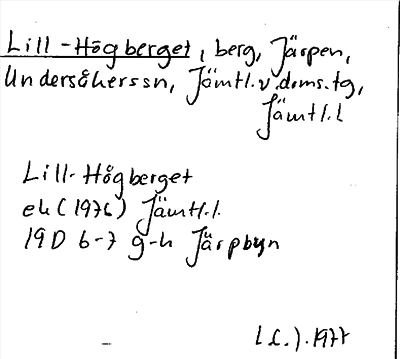 Lill-Högberget, berg, Järpen,
Undersåkerssn, Jämtl.v.doms.tg,
Jämtl.l
Lill-Högberget
ek (1976) Jämtl.l.
19D 6-7 g-h Järpbyn
1977